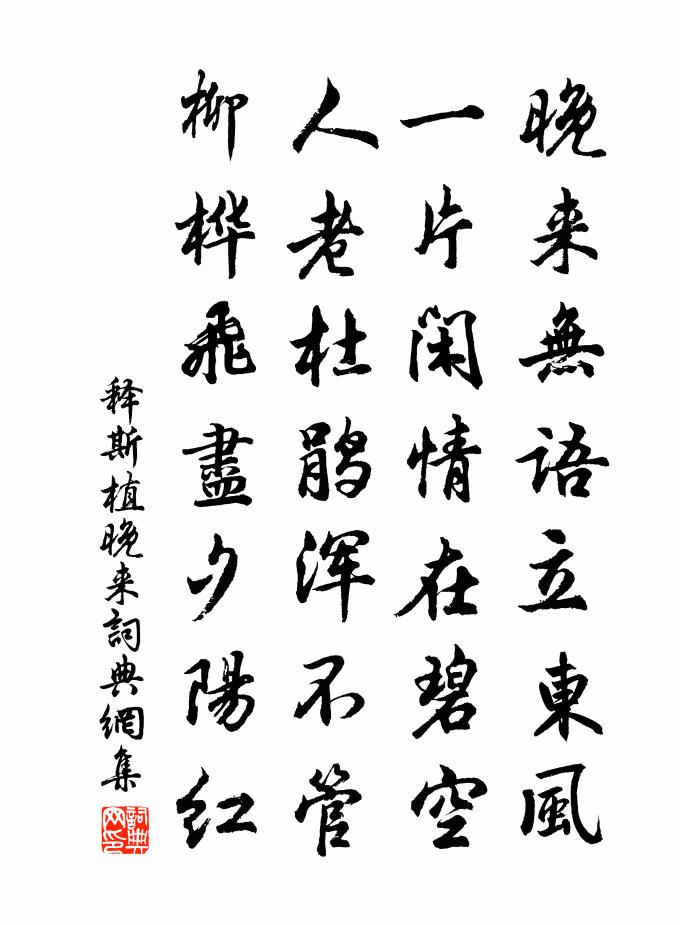 晚来無語立東風
一片閑情在碧空
人老杜鹃浑不管
柳桦飛盡夕陽红
释斯植晚来詞典網集
詞典
网印